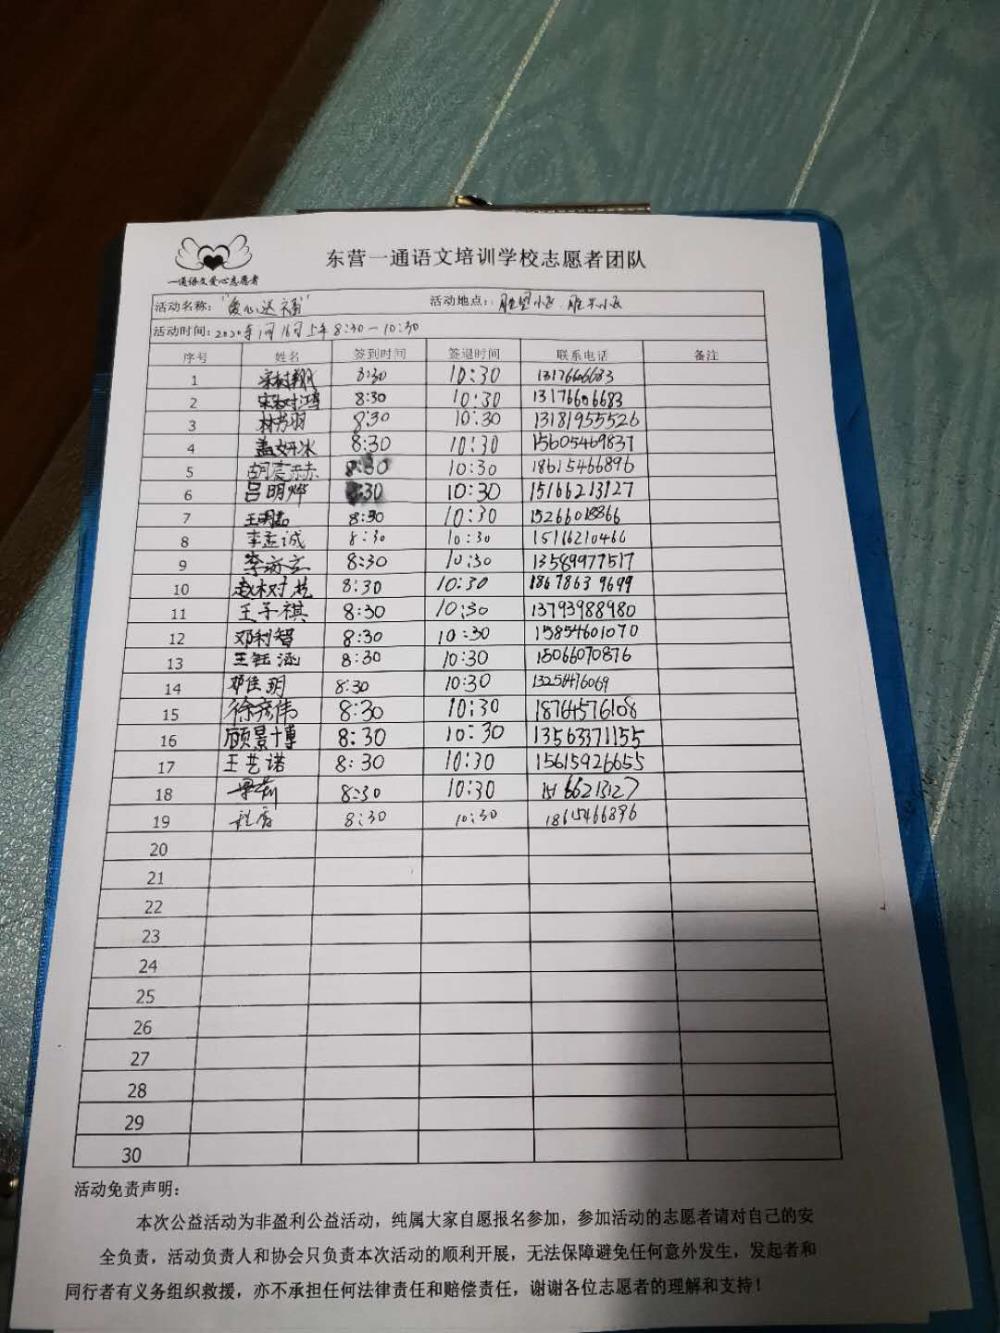 一通语文爱心志愿者
东营一通语文培训学校志愿者团队
活动名称：“爱心送福” 活动地点：胜望小区、胜宏小区
活动时间：2020年1月16日上午8:30—10:30
序号 姓名 签到时间 签退时间 联系电话 备注
1 8:30 10:30 13176606683
2 8:30 10:30 13176606683
3 林书羽 8:30 10:30 13181955526
4 孟妍冰 8:30 10:30 15605469837
5 8:30 10:30 18615466896
6 吕明烨 8:30 10:30 15166213127
7 8:30 10:30 15266018866
8 李孟诚 8:30 10:30 15116210466
9 8:30 10:30 13589977517
10 8:30 10:30 18678639699
11 王子祺 8:30 10:30 13793988980
12 邓利智 8:30 10:30 15854601070
13 王钰涵 8:30 10:30 15066070876
14 邓佳玥 8:30 10:30 13256476069
15 徐彦伟 8:30 10:30 18764576108
16 顾景博 8:30 10:30 13563371155
17 王艺诺 8:30 10:30 15615926655
18 8:30 10:30 15166213127
19 8:30 10:30 18615466896
20
21
22
23
24
25
26
27
28
29
30
活动免责声明：
本次公益活动为非盈利公益活动，纯属大家自愿报名参加，参加活动的志愿者请对自己的安
全负责，活动负责人和协会只负责本次活动的顺利开展，无法保障避免任何意外发生，发起者和
同行者有义务组织救援，亦不承担任何法律责任和赔偿责任，谢谢各位志愿者的理解和支持！